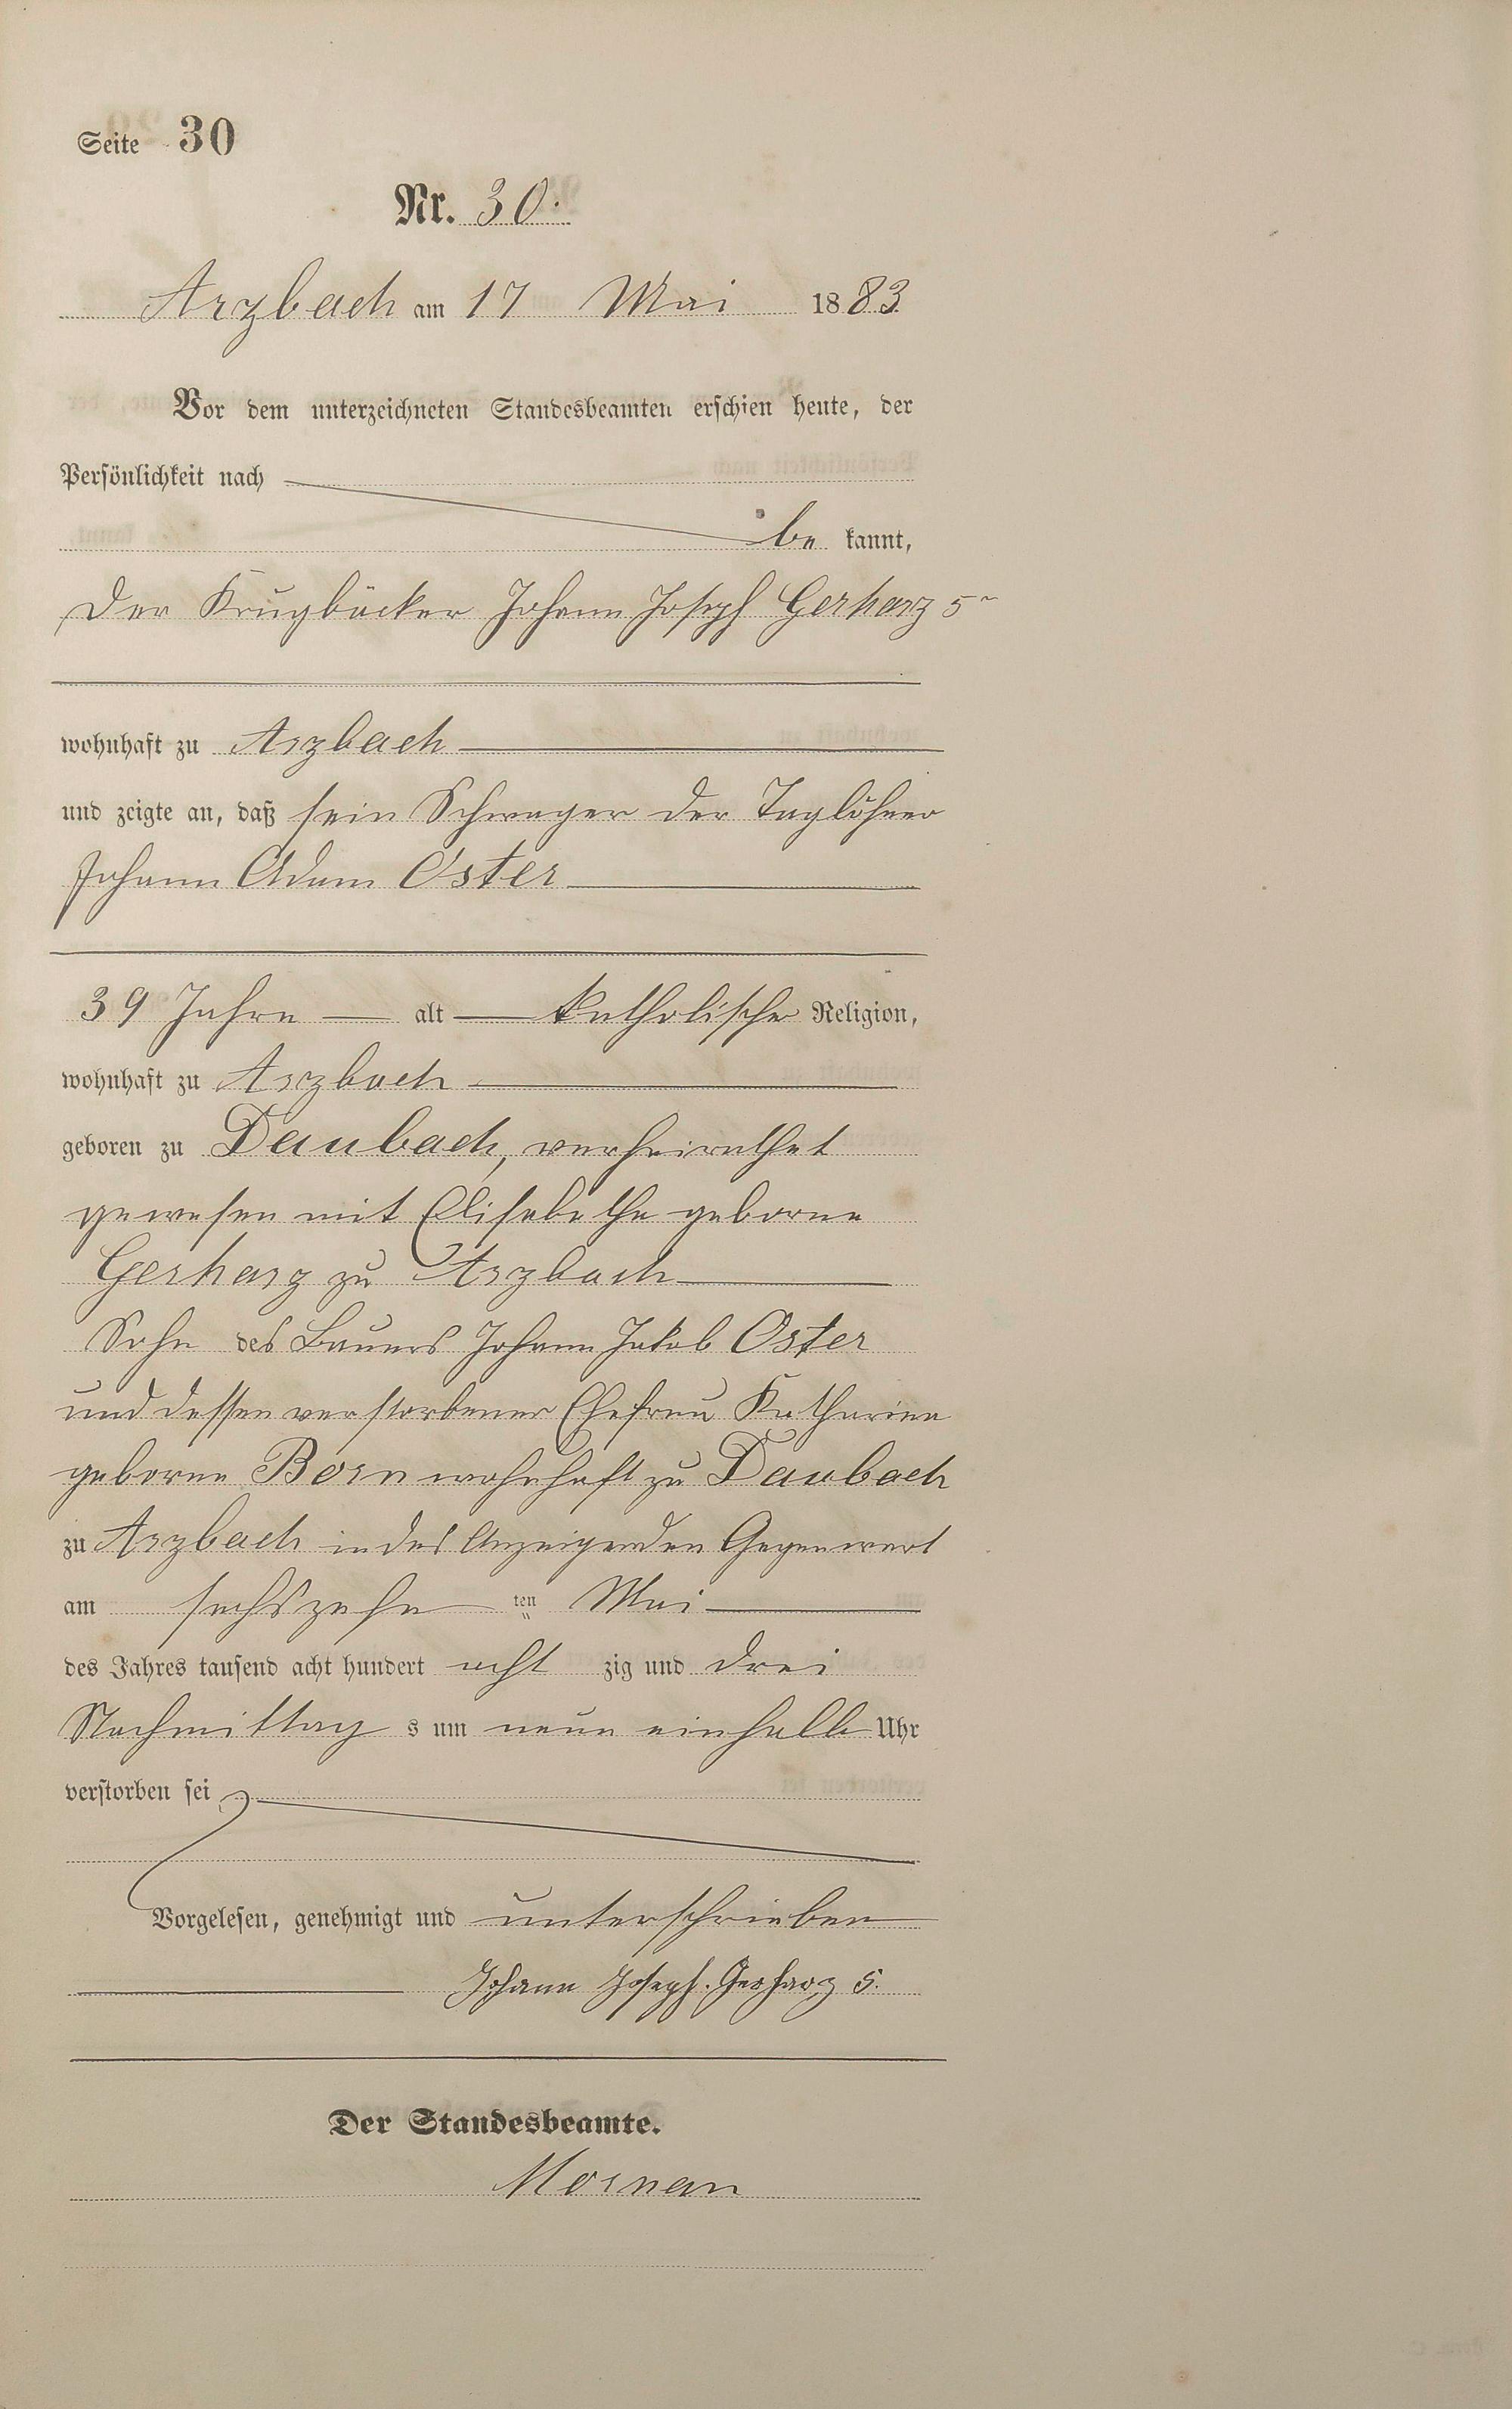 Seite 30
Nr. 30.
Arzbach am 17 Mai 1883
Vor dem unterzeichneten Standesbeamten erschien heute, der
Persönlichkeit nach
be kannt,
der Krugbäcker Johann Joseph Gerharz 5r
wohnhaft zu Arzbach
und zeigte an, daß sein Schwager der Taglöhner
Johann Adam Oster
39 Jahre alt katholischer Religion,
wohnhaft zu Arzbach
geboren zu Daubach, verheirathet
gewesen mit Elisabethe geborne
Gerharz zu Arzbach
Sohn des Bauers Johann Jakob Oster
und dessen verstorbener Ehefrau Katharina
geborne Born wohnhaft zu Daubach
zu Arzbach in des Anzeigenden Gegenwart
am sechszehn ten Mai
des Jahres tausend acht hundert acht zig und drei
Nachmittag s um neun einhalb Uhr
verstorben sei
Vorgelesen, genehmigt und unterschrieben
Johann Joseph Gerharz 5.
Der Standesbeamte.